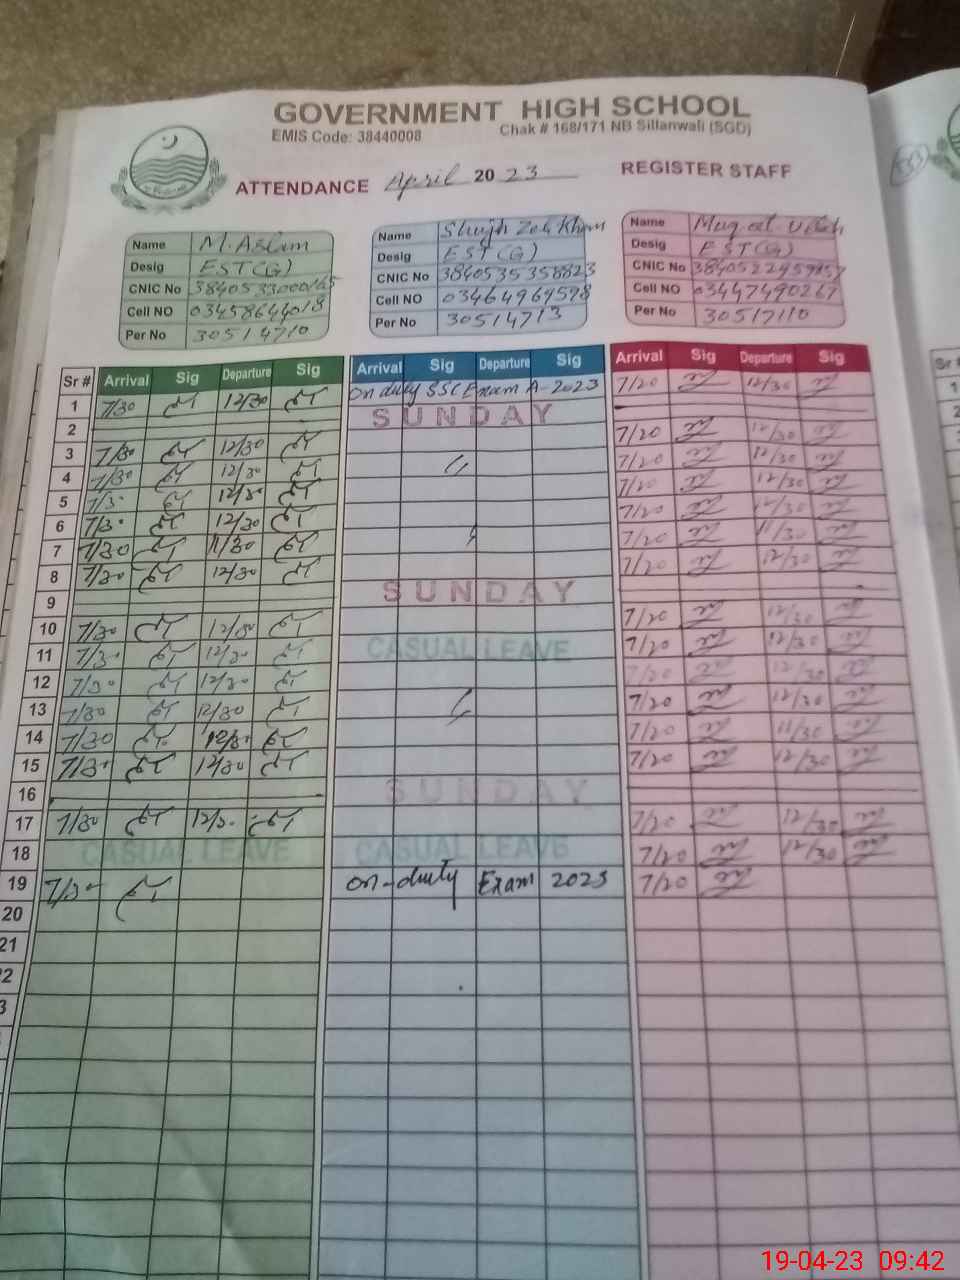 GOVERNMENT HIGH SCHOOL
EMIS Code: 38440008 Chak # 168/171 NB Sillanwali (SGD)
ATTENDANCE April 20 23 REGISTER STAFF
Name M. Aslam
Desig EST(G)
CNIC No
Cell NO 03458644018
Per No 30514710
Name Khan
Desig EST(G)
CNIC No 3840535358823
Cell NO 03464969598
Per No 30514713
Name
Desig EST(G)
CNIC No
Cell NO 03447490267
Per No 30517110
Sr # Arrival Sig Departure Sig Arrival Sig Departure Sig Arrival Sig Departure Sig
1 7/30 12/30 On duty SSC Exam A-2023 7/20 12/30
2 SUNDAY
3 7/30 12/30 7/20 12/30
4 7/30 12/30 7/20 12/30
5 7/30 12/30 7/20 12/30
6 7/30 12/30 7/20 12/30
7 7/30 11/30 7/20 11/30
8 7/30 12/30 7/20 12/30
9 SUNDAY
10 7/30 12/30 7/20 12/30
11 7/30 12/30 CASUAL LEAVE 7/20 12/30
12 7/30 12/30 7/20 12/30
13 7/30 12/30 7/20 12/30
14 7/30 7/20 11/30
15 7/30 12/30 7/20 12/30
16 SUNDAY
17 7/30 12/30 7/20 12/30
18 CASUAL LEAVE CASUAL LEAVE 7/20 12/30
19 7/30 on-duty Exam 2023 7/20
20
21
19-04-23 09:42